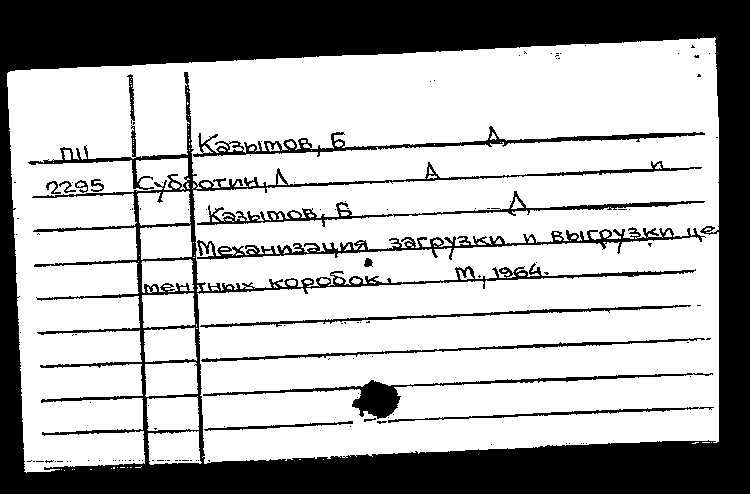 П11 Казытов, Б Д,
2295 Субботин, Л А и
Казытов, Б Д,
Механизация загрузки и выгрузки це
ментных коробок. М., 1964.